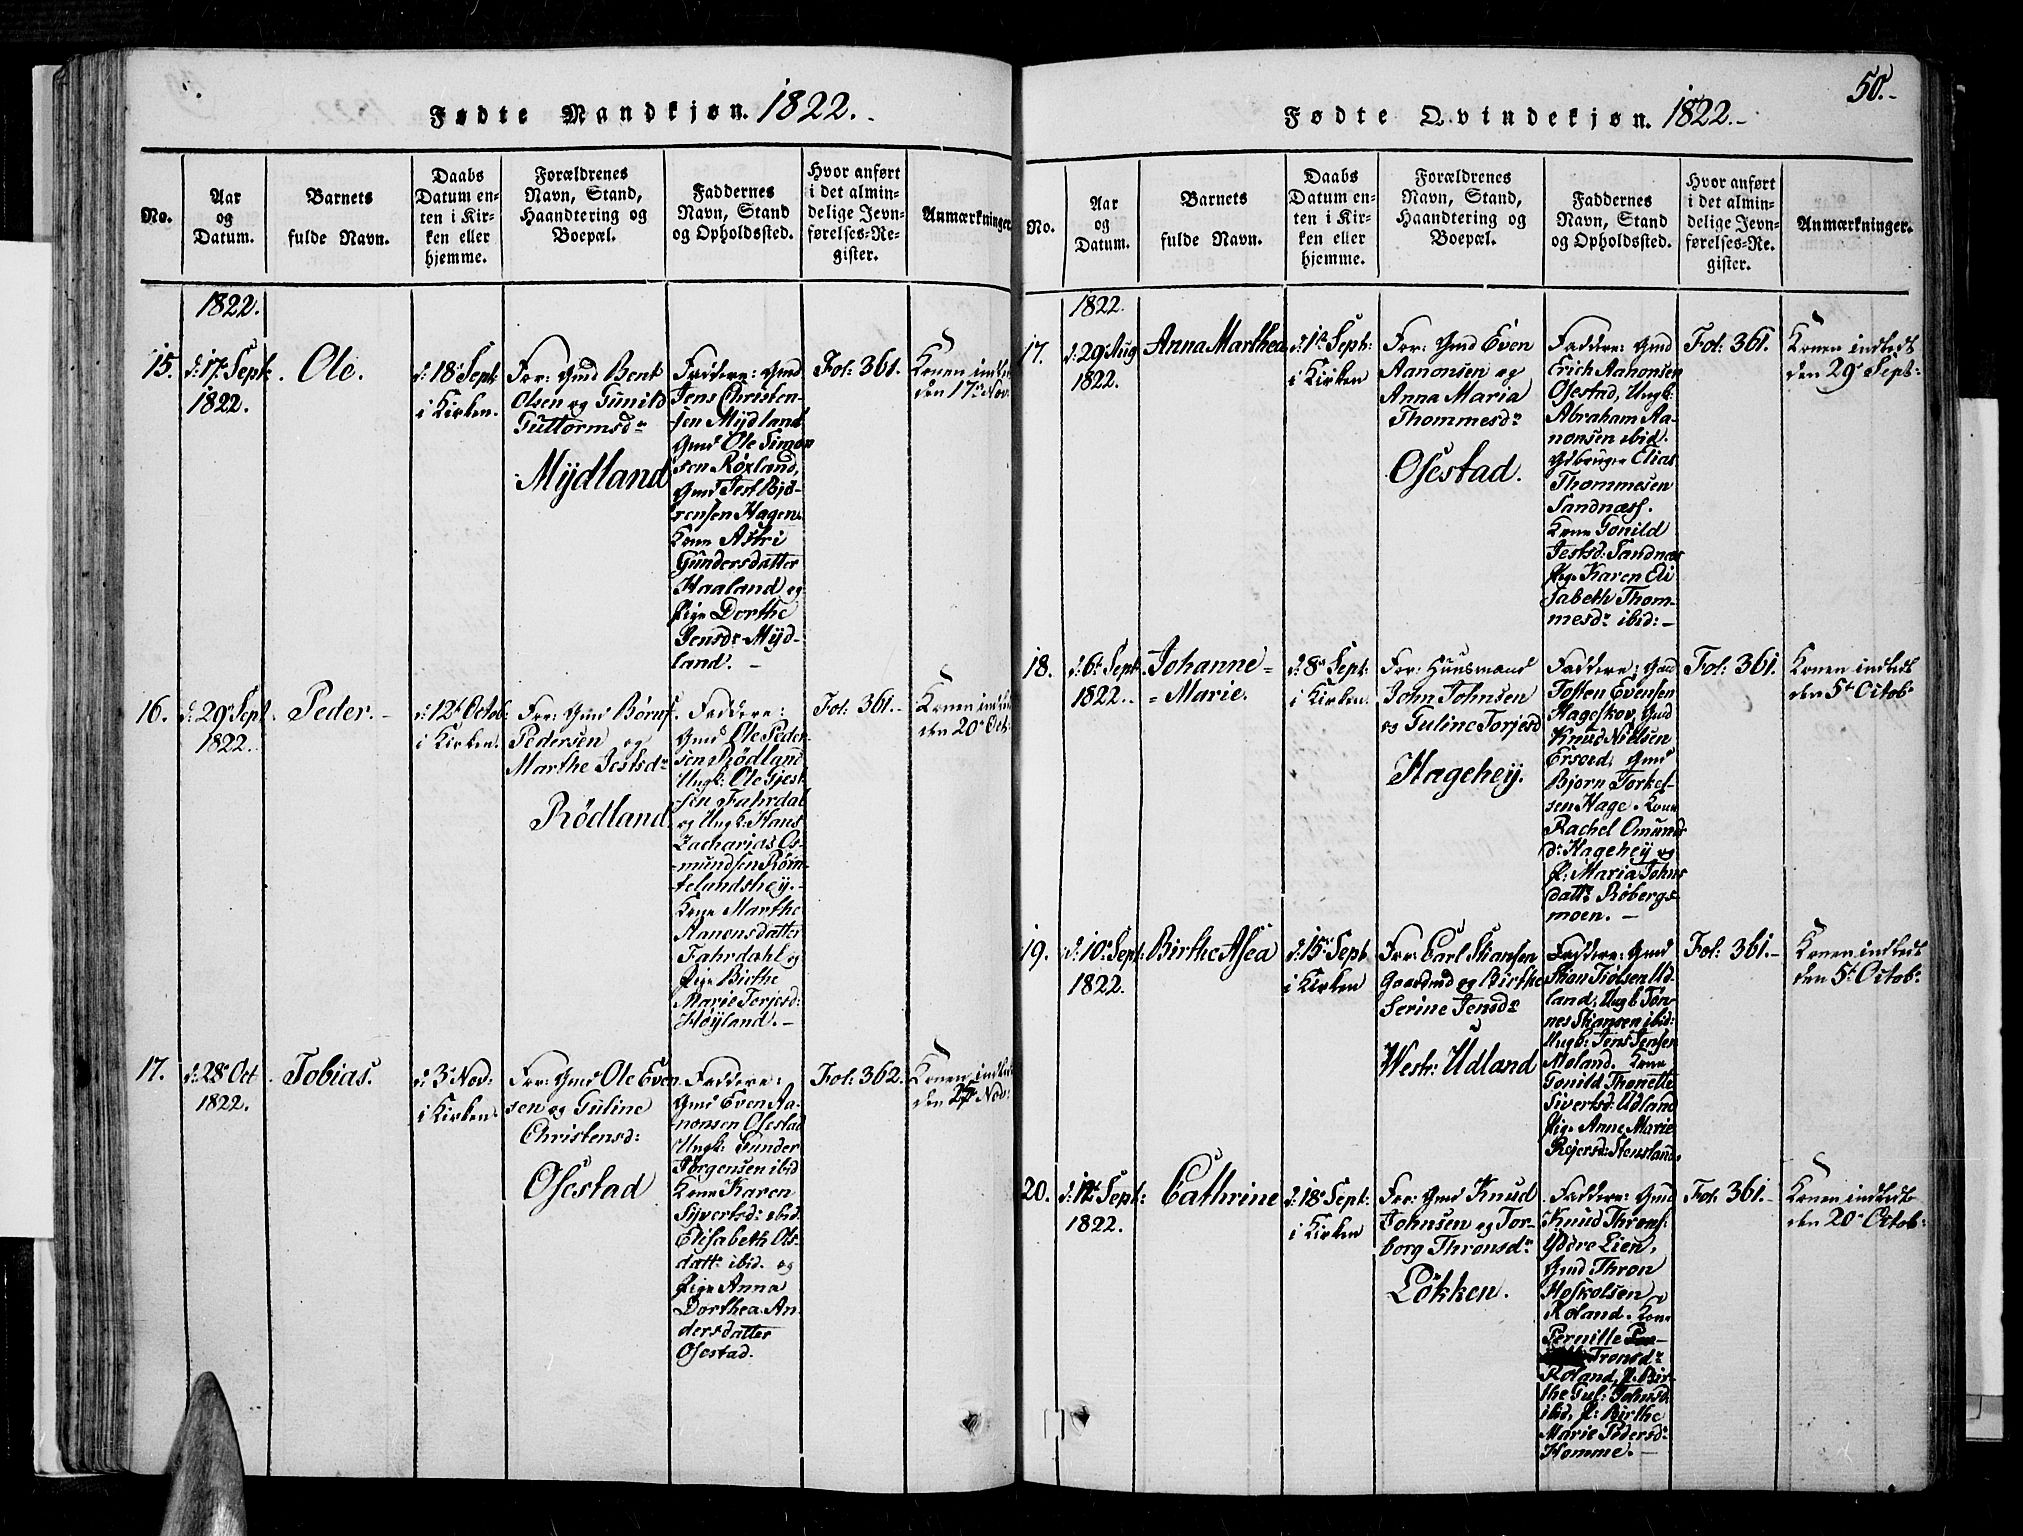 Fødte Mandkjøn. 1822.
No.
Aar
og
Datum.
Barnets
fulde Navn.
Daabs
Datum en-
ten i Kir-
ken eller
hjemme.
Forældrenes
Navn, Stand,
Haandtering og
Boepæl.
Faddernes
Navn, Stand
og Opholdssted.
Hvor anført
i det almin-
delige Jevn-
førelses-Re-
gister.
Anmærkninger
1822.
15.
d: 17 Sept
1822.
Ole.
d: 18 Sept
i Kirken.
For: Gmd Bent
Olsen og Gunild
Guttormsdr
Mydland
Faddere: Gmd
Jens Christen-
sen Mydland
Gmd Ole Simon
sen Røxland,
Gmd Jest Bjø-
rensen Hagen.
Kone Astri
Gundersdatter
Haaland og
Pige Dorthe
Jensdr Myd-
land.
Fol: 361.
Konen indledt
den 17de Nov.
16.
d: 29 Sept
1822.
Peder.
d: 12t Octob:
i Kirken.
For: Gmd Børuf
Pedersen og
Marthe Jestsdr
Rødland.
Faddere:
Gmd Ole Peder-
sen Rødland
Ungk: Ole Gjest-
sen Fahrdal
og Ungk: Hans
Zacharias Os-
mundsen Røm-
telandshey.
Kone Marthe
Aanonsdatter
Fahrdahl og
Pige Birthe
Marie Terjesd:
Høyland.
Fol: 361.
Konen indledt
den 20 Oct:
17.
d: 28 Oct
1822.
Tobias.
d: 3 Nov:
i Kirken.
For: Gmd Ole Even
sen og Guline
Christensd:
Osestad
Faddere:
Gmd Even Aa-
nonsen Osestad
Ungk: Gunder
Jørgensen ibid
Kone Karen
Sijvertsd: ibid.
Elisabeth Ols-
datt: ibid. og
Pige Anna
Dorthea An-
dersdatter
Osestad.
Fol: 362.
Konen indledt
den Nov:
50.
Fødte Qvindekjøn. 1822.
No.
Aar
og
Datum.
Barnets
fulde Navn.
Daabs
Datum en-
ten i Kir-
ken eller
hjemme.
Forældrenes
Navn, Stand,
Haandtering og
Boepæl.
Faddernes
Navn, Stand
og Opholdssted.
Hvor anført
i det almin-
delige Jevn-
førelses-Re-
gister.
Anmærkninger.
1822.
17.
d: 29 Aug
1822.
Anna Marthea
d: 1t Sept:
i Kirken
For: Gmd Even
Aanonsen og
Anna Maria
Thommesdr
Osestad.
Faddere: Gmd
Erich Aanonsen
Osestad, Ungk:
Abraham Aa-
nonsen ibid.
Gdbruger Elias
Thommesen
Sandnæss.
Kone Gonild
Jestsd: Sandnæs
Pige Karen Eli
sabeth Thom-
mesdr ibid:
Fol: 361.
Konen indledt
den 29 Sept:
18.
d: 6t Sept.
1822.
Johanne
Marie.
d: 8 Sept:
i Kirken.
For: Huusmand
John Johnsen
og Guline Torjesd
Hagehey.
Faddere: Gmd
Tosten Evensen
Hageskov, Gmd
Knud Nielsen
Ersoed, Gmd
Bjorn Torkel-
sen Hage. Kone
Rachel Omunds
dr Hagehey og
P: Maria Johns
datter Røbergs-
moen.
Fol: 361.
Konen indledt
den 5t Octobr
19.
d: 10 Sept:
1822.
Birthe Asea
d: 15 Sept
i Kirken
For: Carl Skansen
Gaardmd og Birthe
Serine Jensdr
Westr: Udland
Faddere: Gmd
Skan Tjølsen Ud-
land, Ungk Tøn-
nes Skansen ibid:
Ungk: Jens Jensen
Moland. Kone
Gonild Thonette
Sivertsd: Udland
Pige Anne Marie
Rejersd: Stensland.
Fol: 361.
Konen indledt
den 5t Octobr
20.
d: 12t Sept:
1822.
Cathrine
d: 18 Sept:
i Kirken
For: Gmd Knud
Johnsen og Tor-
borg Thronsdr
Løkken.
Faddere: Gmd
Knud Throns:
Ydre Lien,
Gmd Thron
Hoskolsen
Roland. Kone
Pernille
Tronsdr
Roland, P: Bir-
the Gul: Johnsd
ibid, P: Birthe
Marie Pedersdr
Homme.
Fol: 361.
Konen indledt
den 20 Octob: